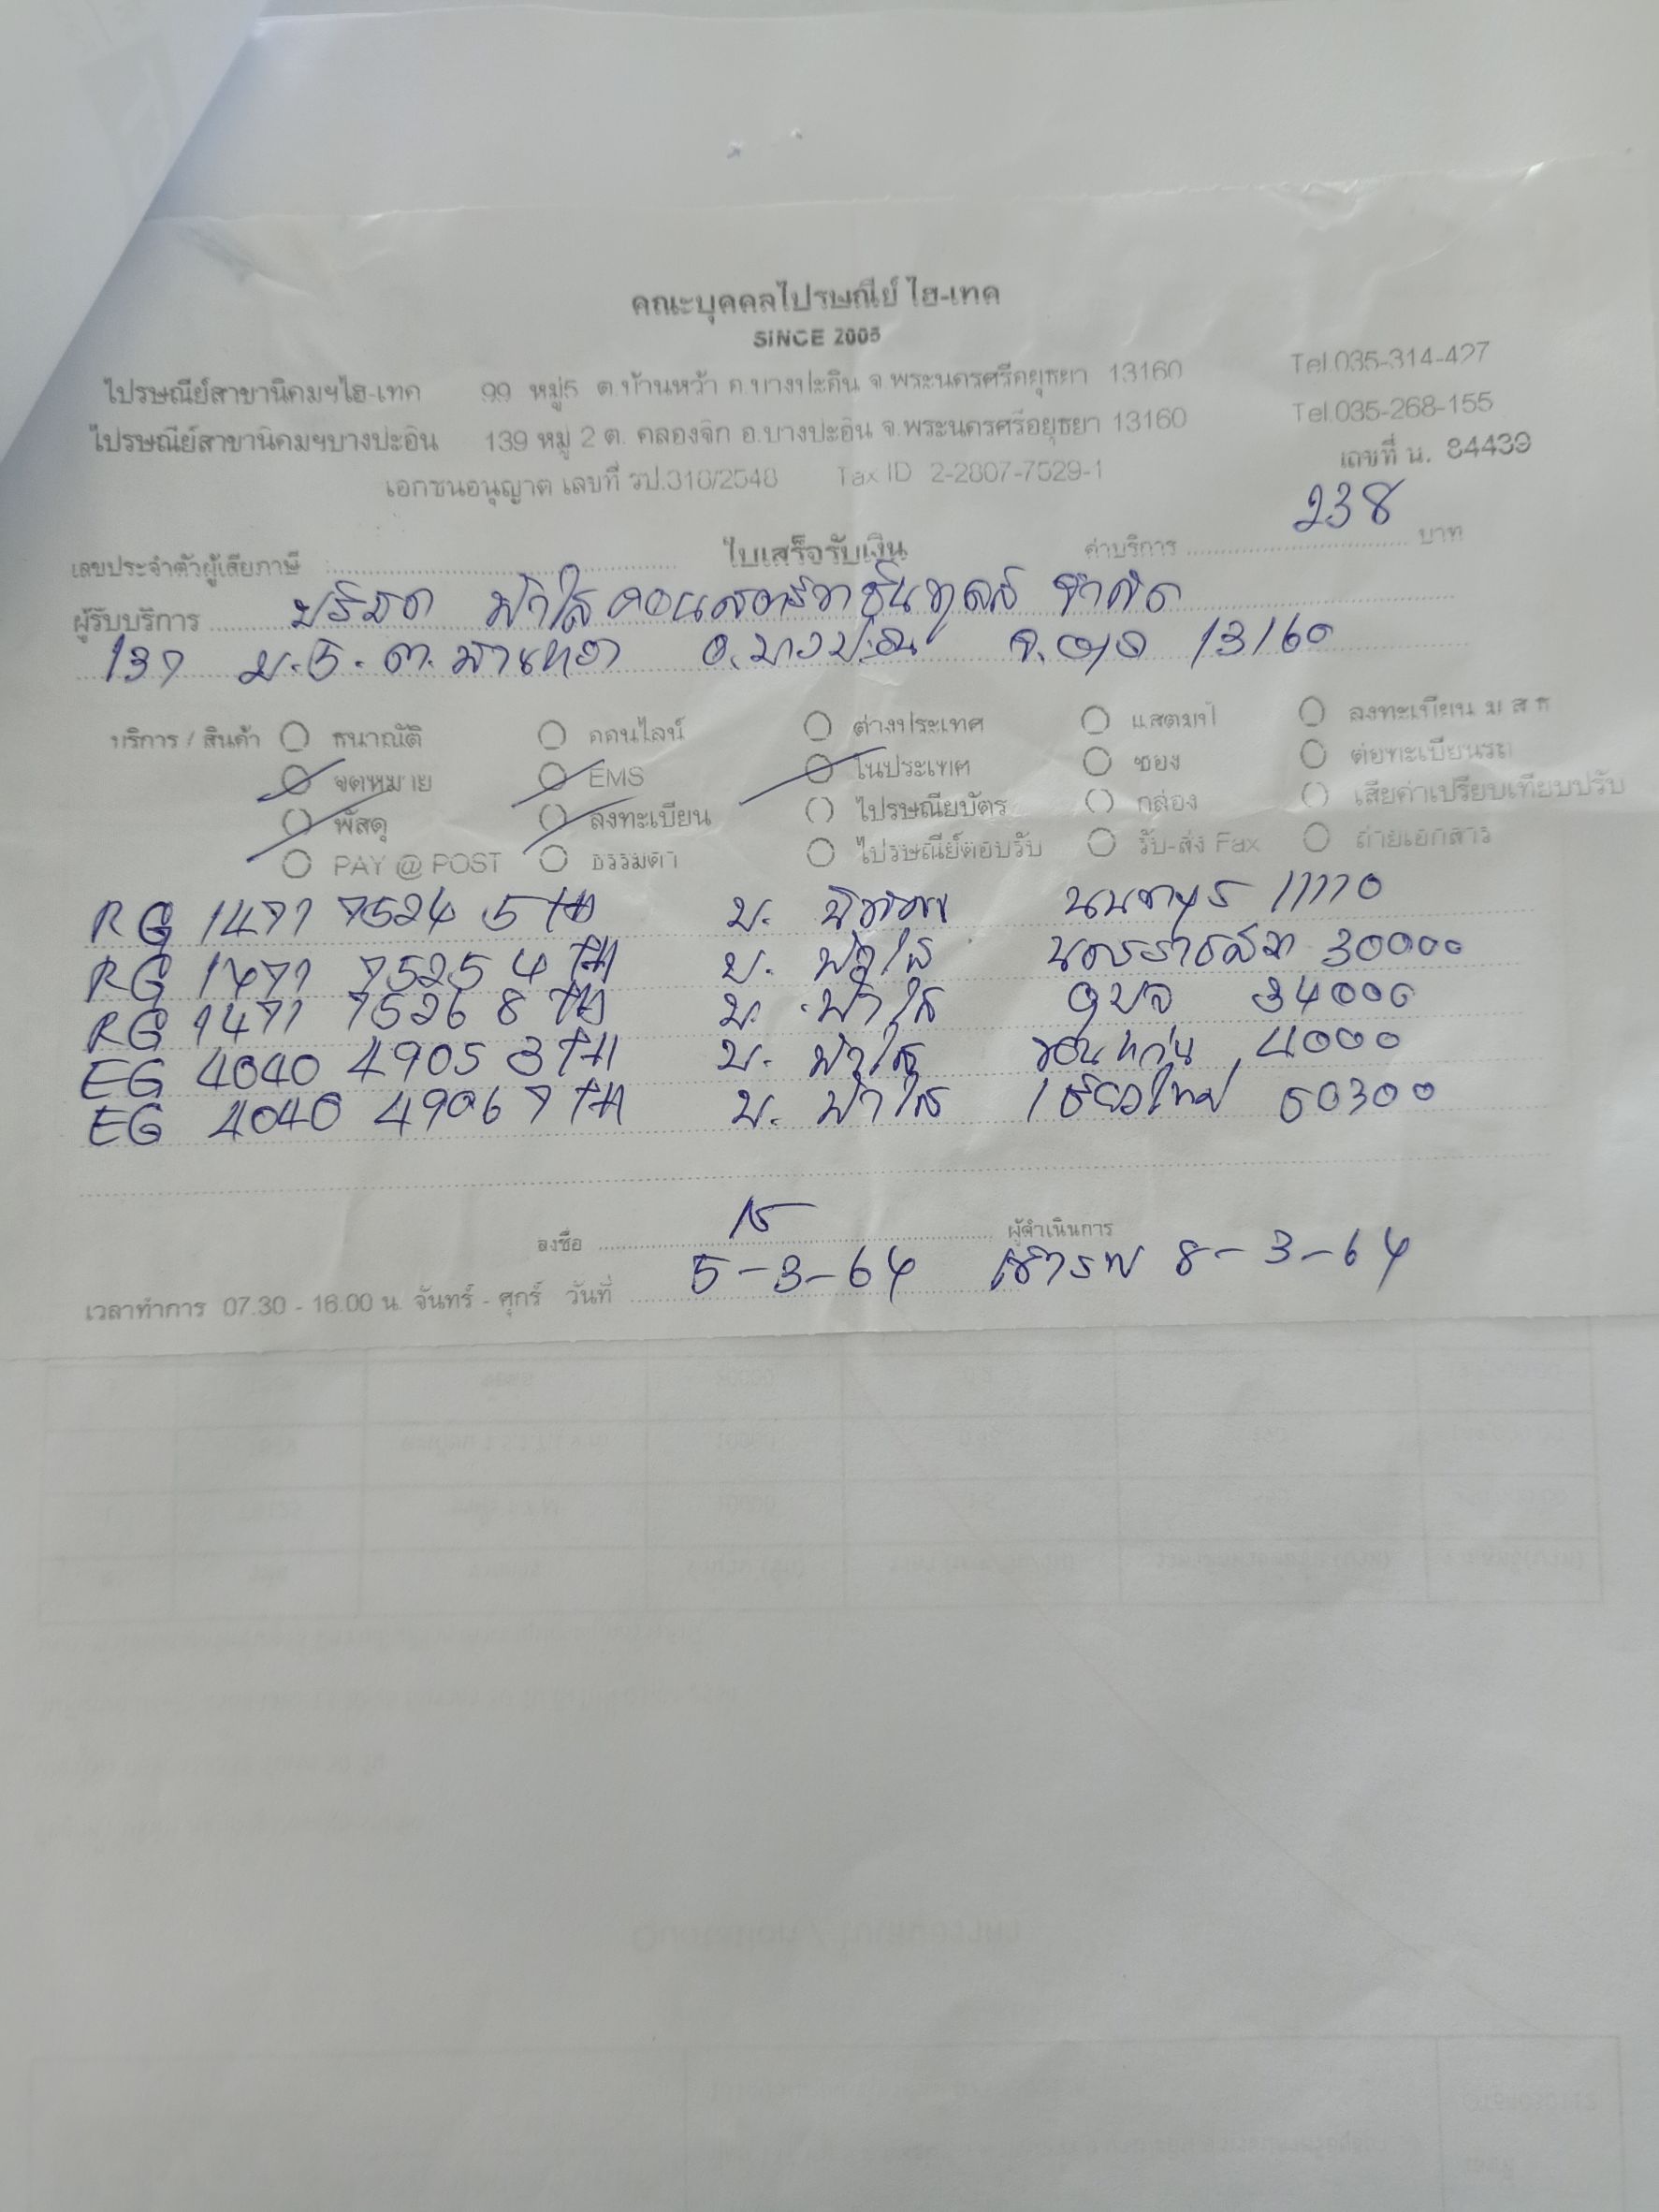 คณะบุคคลไปรษณีย์ ไฮ-เทค
SINCE 2005
ไปรษณีย์สาขานิคมฯไฮ-เทค 99 หมู่5 ต.บ้านหว้า อ.บางปะอิน จ.พระนครศรีอยุธยา 13160 Tel.035-314-427
ไปรษณีย์สาขานิคมฯบางปะอิน 139 หมู่ 2 ต. คลองจิก อ.บางปะอิน จ.พระนครศรีอยุธยา 13160 Tel.035-268-155
เอกชนอนุญาต เลขที่ รป.318/2548 Tax ID 2-2807-7529-1 เลขที่ น. 84439
เลขประจำตัวผู้เสียภาษี ใบเสร็จรับเงิน ค่าบริการ 238 บาท
ผู้รับบริการ บริษัท ฟ้าใสคอนสตรัคชั่นทูลส์ จำกัด
137 ม.5. ต.บ้านหว้า อ.บางปะอิน จ.อยุธยา 13160
บริการ / สินค้า ธนาณัติ ออนไลน์ ต่างประเทศ แสตมป์ ลงทะเบียน ม ส ธ
จดหมาย EMS ในประเทศ ซอง ต่อทะเบียนรถ
พัสดุ ลงทะเบียน ไปรษณียบัตร กล่อง เสียค่าเปรียบเทียบปรับ
PAY @ POST ธรรมดา ไปรษณีย์ตอบรับ รับ-ส่ง Fax ถ่ายเอกสาร
RG 1471 7524 5 TH บ. นนทบุรี 11110
RG 1471 7525 4 TH บ. ฟ้าใส นครราชสีมา 30000
RG 1471 7526 8 TH บ. ฟ้าใส อุบล 34000
EG 4040 4905 3 TH บ. ฟ้าใส ขอนแก่น 4000
EG 4040 4906 7 TH บ. ฟ้าใส เชียงใหม่ 50300
ลงชื่อ ผู้ดำเนินการ
เวลาทำการ 07.30 - 16.00 น. จันทร์ - ศุกร์ วันที่ 5-3-64 8-3-64